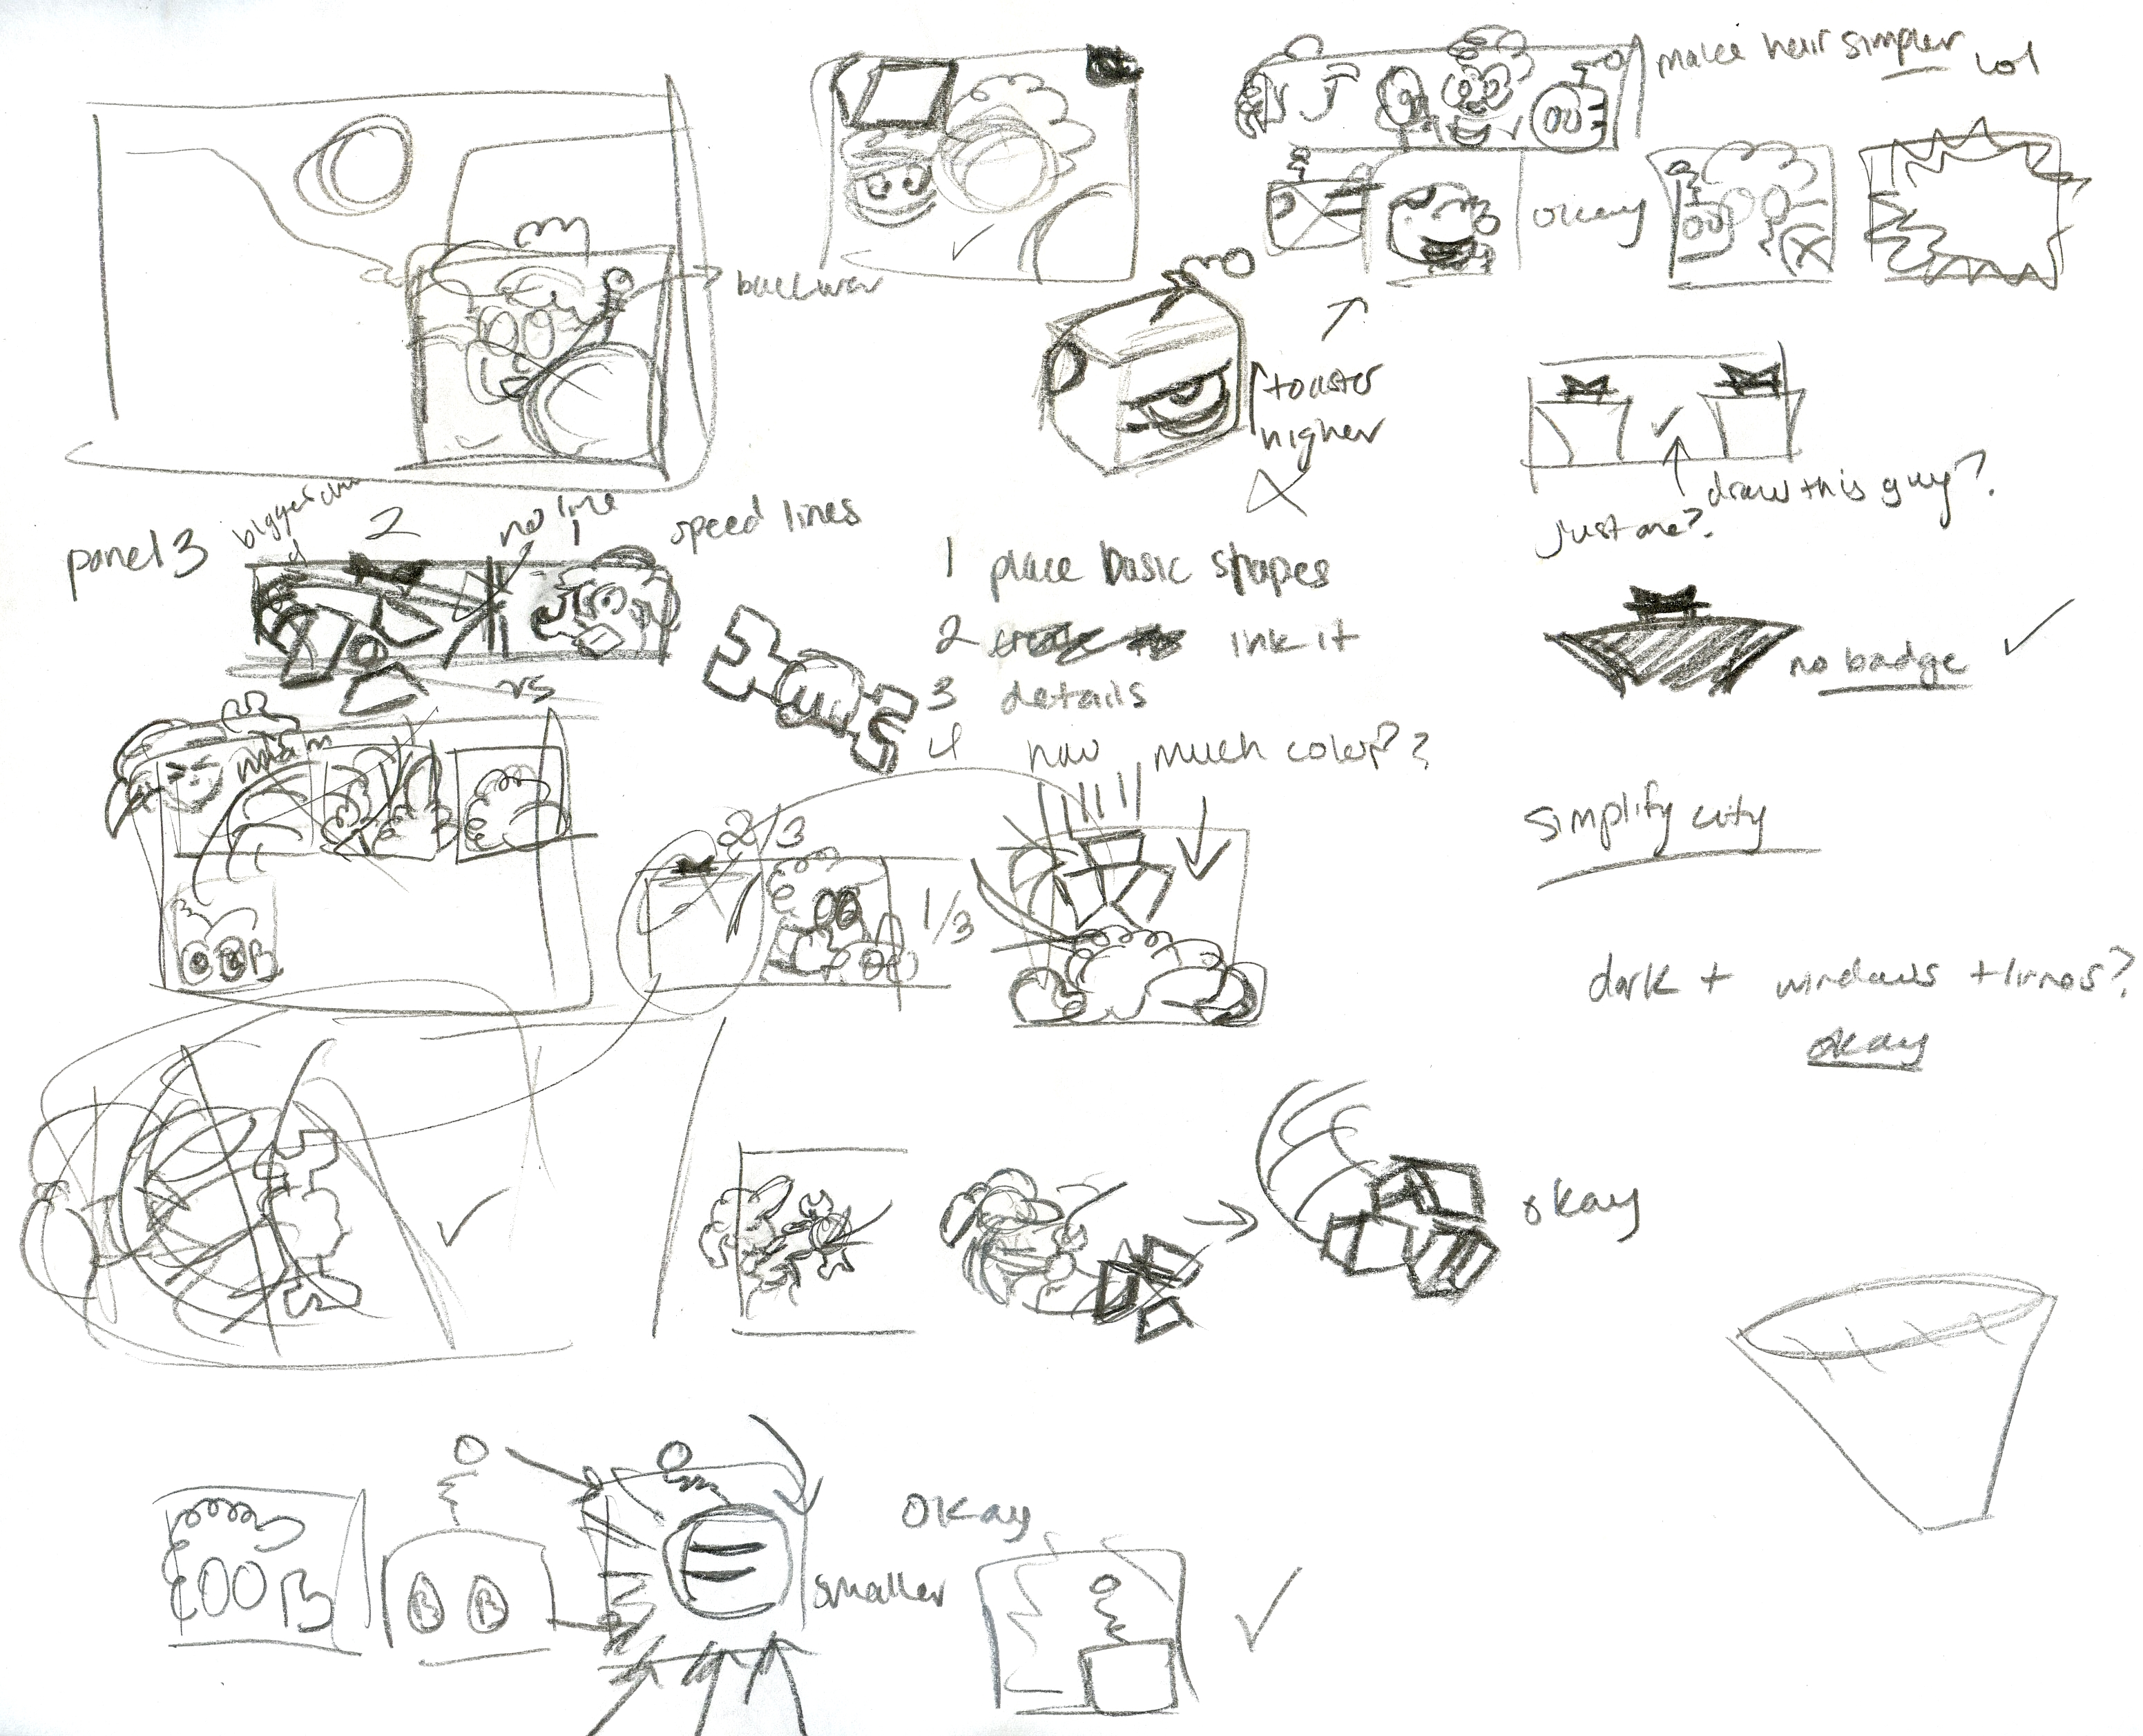 make hair simpler lol
okay
toaster
higher
draw this guy?
just one?
panel 3
bigger
2
no line
1
speed lines
1 place basic shapes
2 ink it
3 details
4 how much color?
no badge
vs
simplify city
2/3
1/3
dark + windows + lines?
okay
okay
okay
smaller